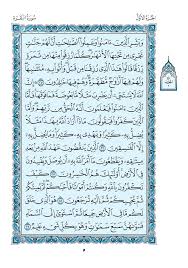 الجزء الأول سورة البقرة
وَبَشِّرِ الَّذِينَ ءَامَنُوا وَعَمِلُوا الصَّٰلِحَٰتِ أَنَّ لَهُمْ جَنَّٰتٍ
تَجْرِي مِن تَحْتِهَا الْأَنْهَٰرُ كُلَّمَا رُزِقُوا مِنْهَا مِن ثَمَرَةٍ رِّزْقًا
قَالُوا هَٰذَا الَّذِي رُزِقْنَا مِن قَبْلُ وَأُتُوا بِهِ مُتَشَٰبِهًا
وَلَهُمْ فِيهَا أَزْوَٰجٌ مُّطَهَّرَةٌ وَهُمْ فِيهَا خَٰلِدُونَ ۝٢٥ ۞ إِنَّ اللَّهَ لَا
يَسْتَحْيِي أَن يَضْرِبَ مَثَلًا مَّا بَعُوضَةً فَمَا فَوْقَهَا فَأَمَّا
الَّذِينَ ءَامَنُوا فَيَعْلَمُونَ أَنَّهُ الْحَقُّ مِن رَّبِّهِمْ وَأَمَّا الَّذِينَ
كَفَرُوا فَيَقُولُونَ مَاذَا أَرَادَ اللَّهُ بِهَٰذَا مَثَلًا يُضِلُّ بِهِ
كَثِيرًا وَيَهْدِي بِهِ كَثِيرًا وَمَا يُضِلُّ بِهِ إِلَّا الْفَٰسِقِينَ ۝٢٦
الَّذِينَ يَنقُضُونَ عَهْدَ اللَّهِ مِن بَعْدِ مِيثَٰقِهِ
وَيَقْطَعُونَ مَا أَمَرَ اللَّهُ بِهِ أَن يُوصَلَ وَيُفْسِدُونَ
فِي الْأَرْضِ أُولَٰئِكَ هُمُ الْخَٰسِرُونَ ۝٢٧ كَيْفَ تَكْفُرُونَ
بِاللَّهِ وَكُنتُمْ أَمْوَٰتًا فَأَحْيَٰكُمْ ثُمَّ يُمِيتُكُمْ ثُمَّ يُحْيِيكُمْ
ثُمَّ إِلَيْهِ تُرْجَعُونَ ۝٢٨ هُوَ الَّذِي خَلَقَ لَكُم
مَّا فِي الْأَرْضِ جَمِيعًا ثُمَّ اسْتَوَىٰ إِلَى السَّمَاءِ
فَسَوَّىٰهُنَّ سَبْعَ سَمَٰوَٰتٍ وَهُوَ بِكُلِّ شَيْءٍ عَلِيمٌ ۝٢٩
٥